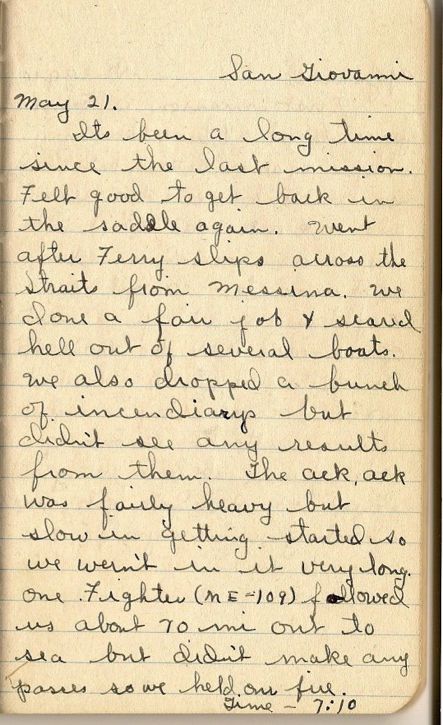 San Giovanni
May 21.
Its been a long time
since the last mission.
Felt good to get back in
the saddle again. Went
after Ferry slips across the
straits from Messina. We
done a fair job & scared
hell out of several boats.
We also dropped a bunch
of incendiarys but
didn't see any results
from them. The ack, ack
was fairly heavy but
slow in getting started so
we weren't in it very long.
One Fighter (ME-109) followed
us about 70 mi out to
sea but didn't make any
passes so we held our fire.
Time - 7:10